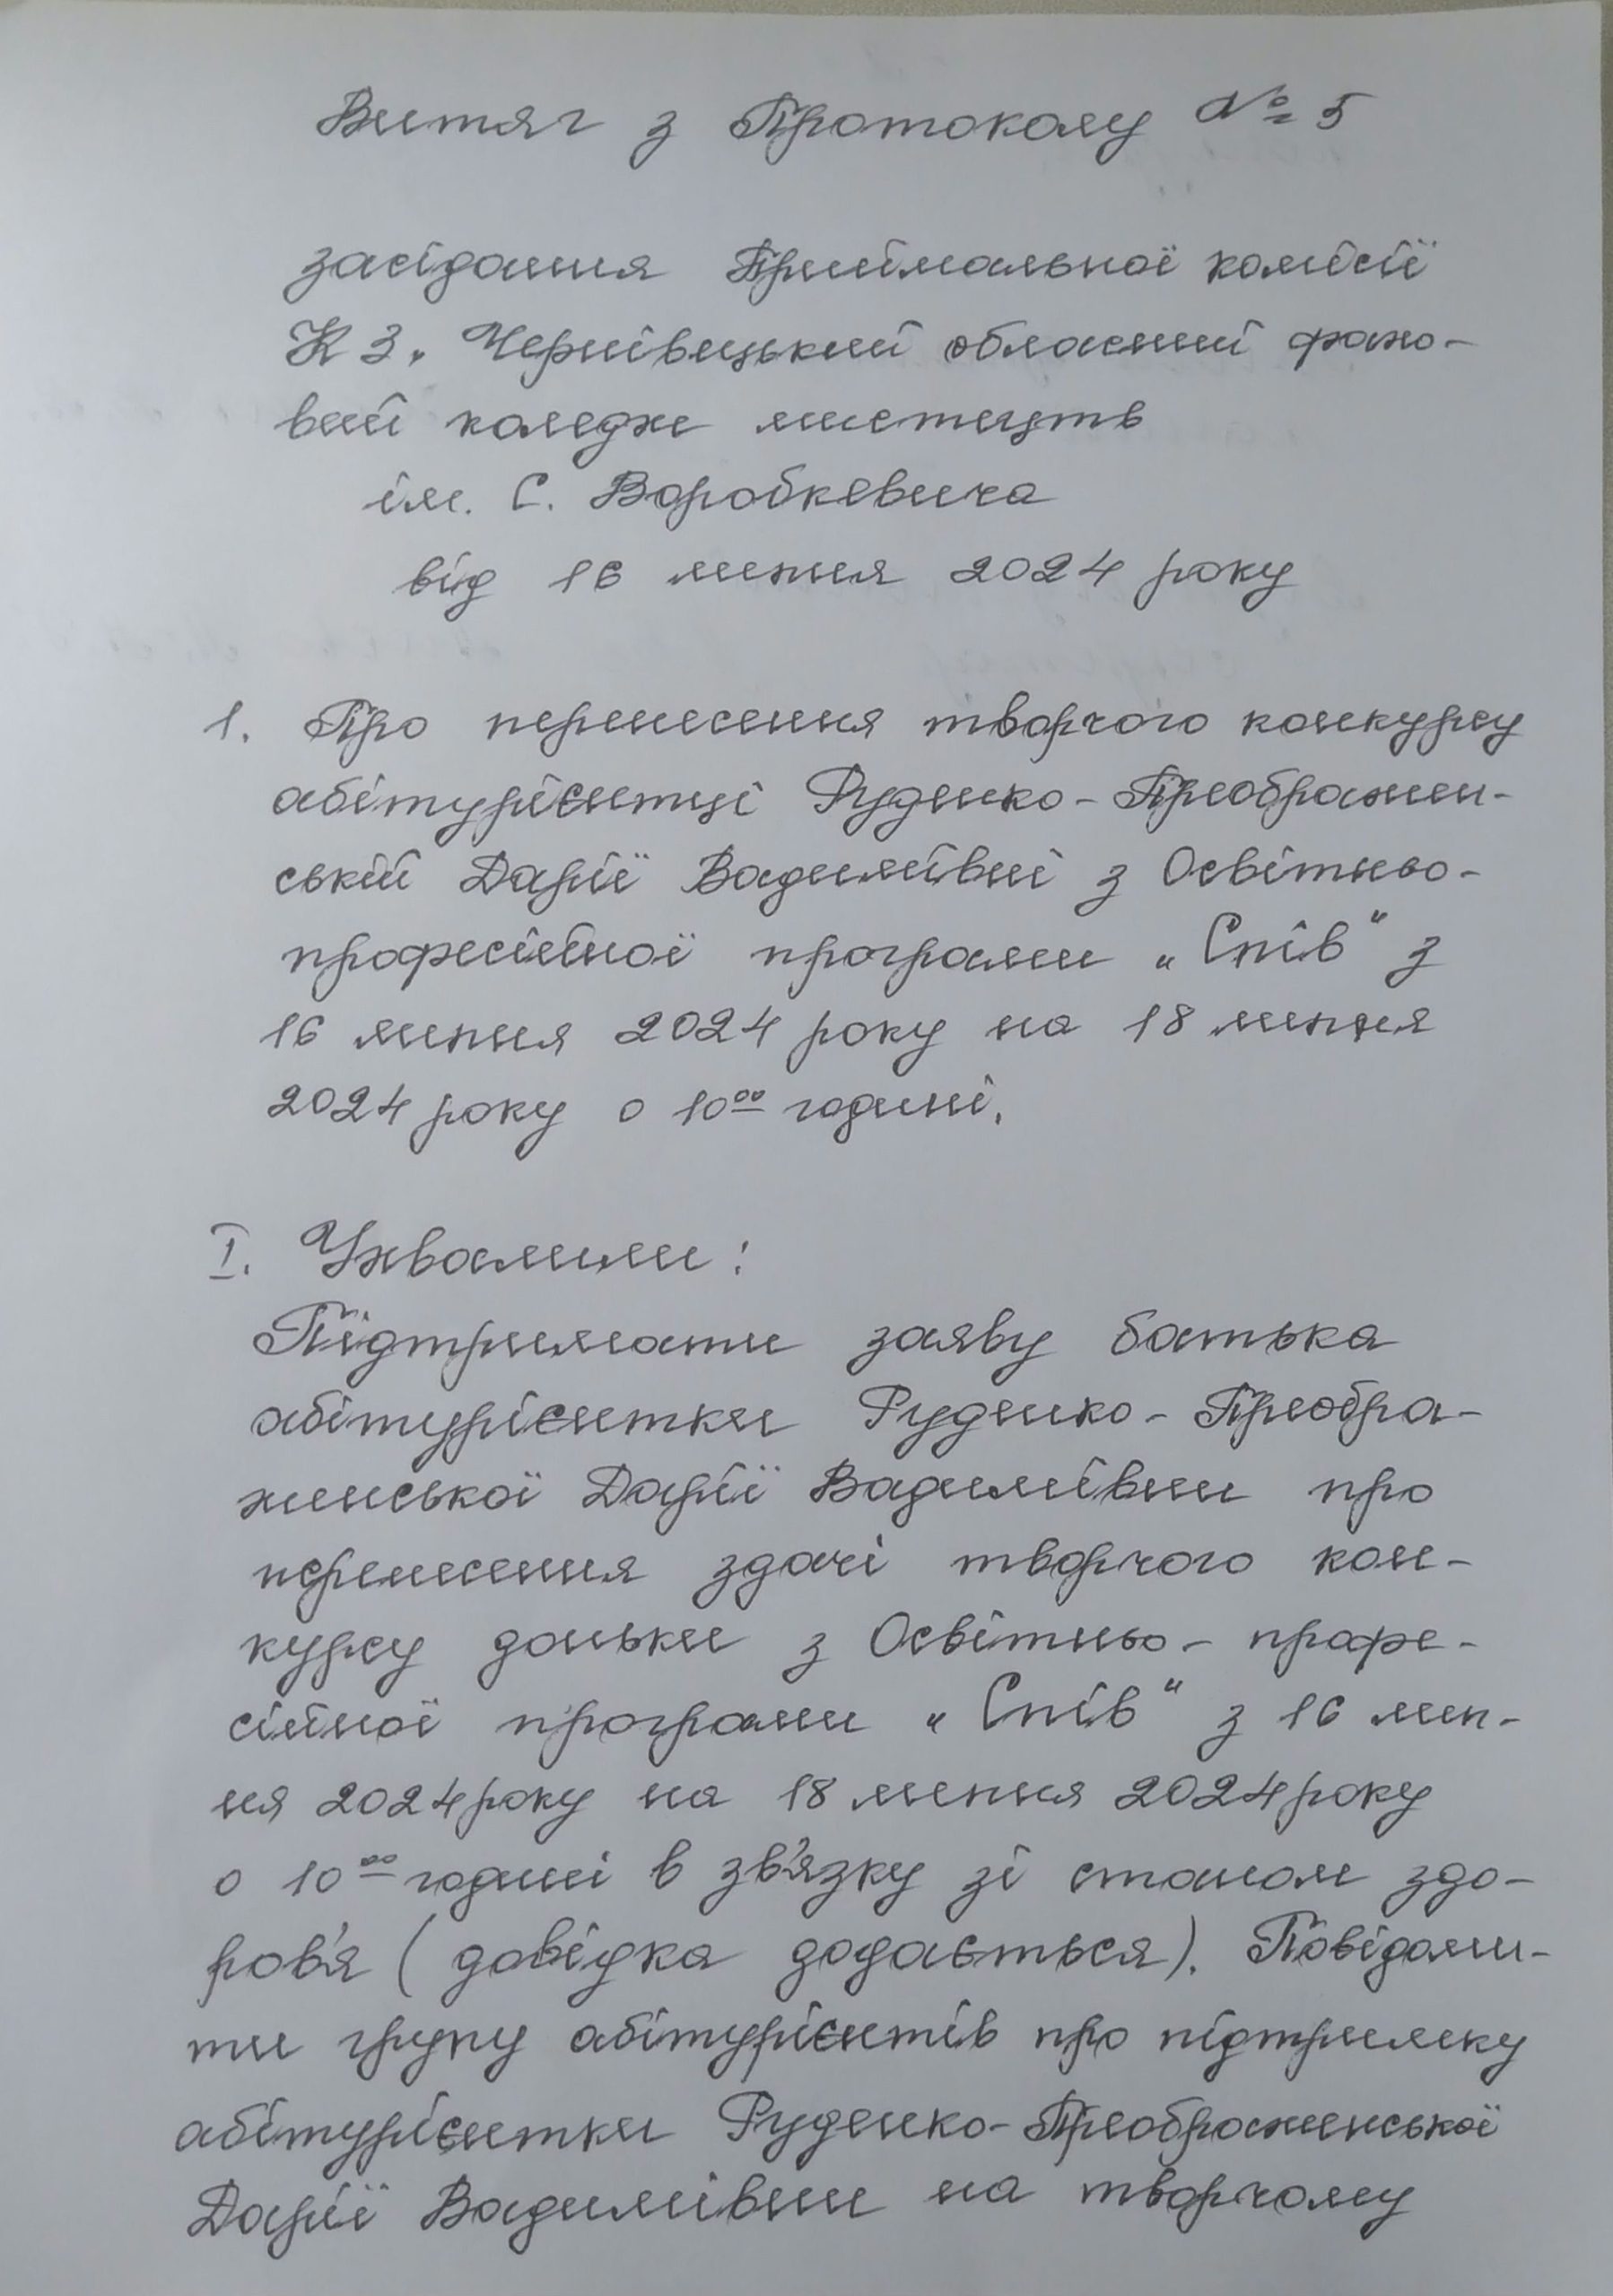 Витяг з Протоколу № 5
засідання Приймальної комісії
КЗ. Чернівецький обласний фахо-
вий коледж мистецтв
ім. С. Воробкевича
від 16 липня 2024 року
1. Про перенесення творчого конкурсу
абітурієнтці Руденко-Преображен-
ській Дарії Вадимівні з Освітньо-
професійної програми „Спів“ з
16 липня 2024 року на 18 липня
2024 року о 10⁰⁰ годині.
I. Ухвалили:
Підтримати заяву батька
абітурієнтки Руденко-Преобра-
женської Дарії Вадимівни про
перенесення здачі творчого кон-
курсу доньки з Освітньо-профе-
сійної програми „Спів“ з 16 лип-
ня 2024 року на 18 липня 2024 року
о 10⁰⁰ годині в зв'язку зі станом здо-
ров'я (довідка додається). Повідоми-
ти групу абітурієнтів про підтримку
абітурієнтки Руденко-Преображенської
Дарії Вадимівни на творчому